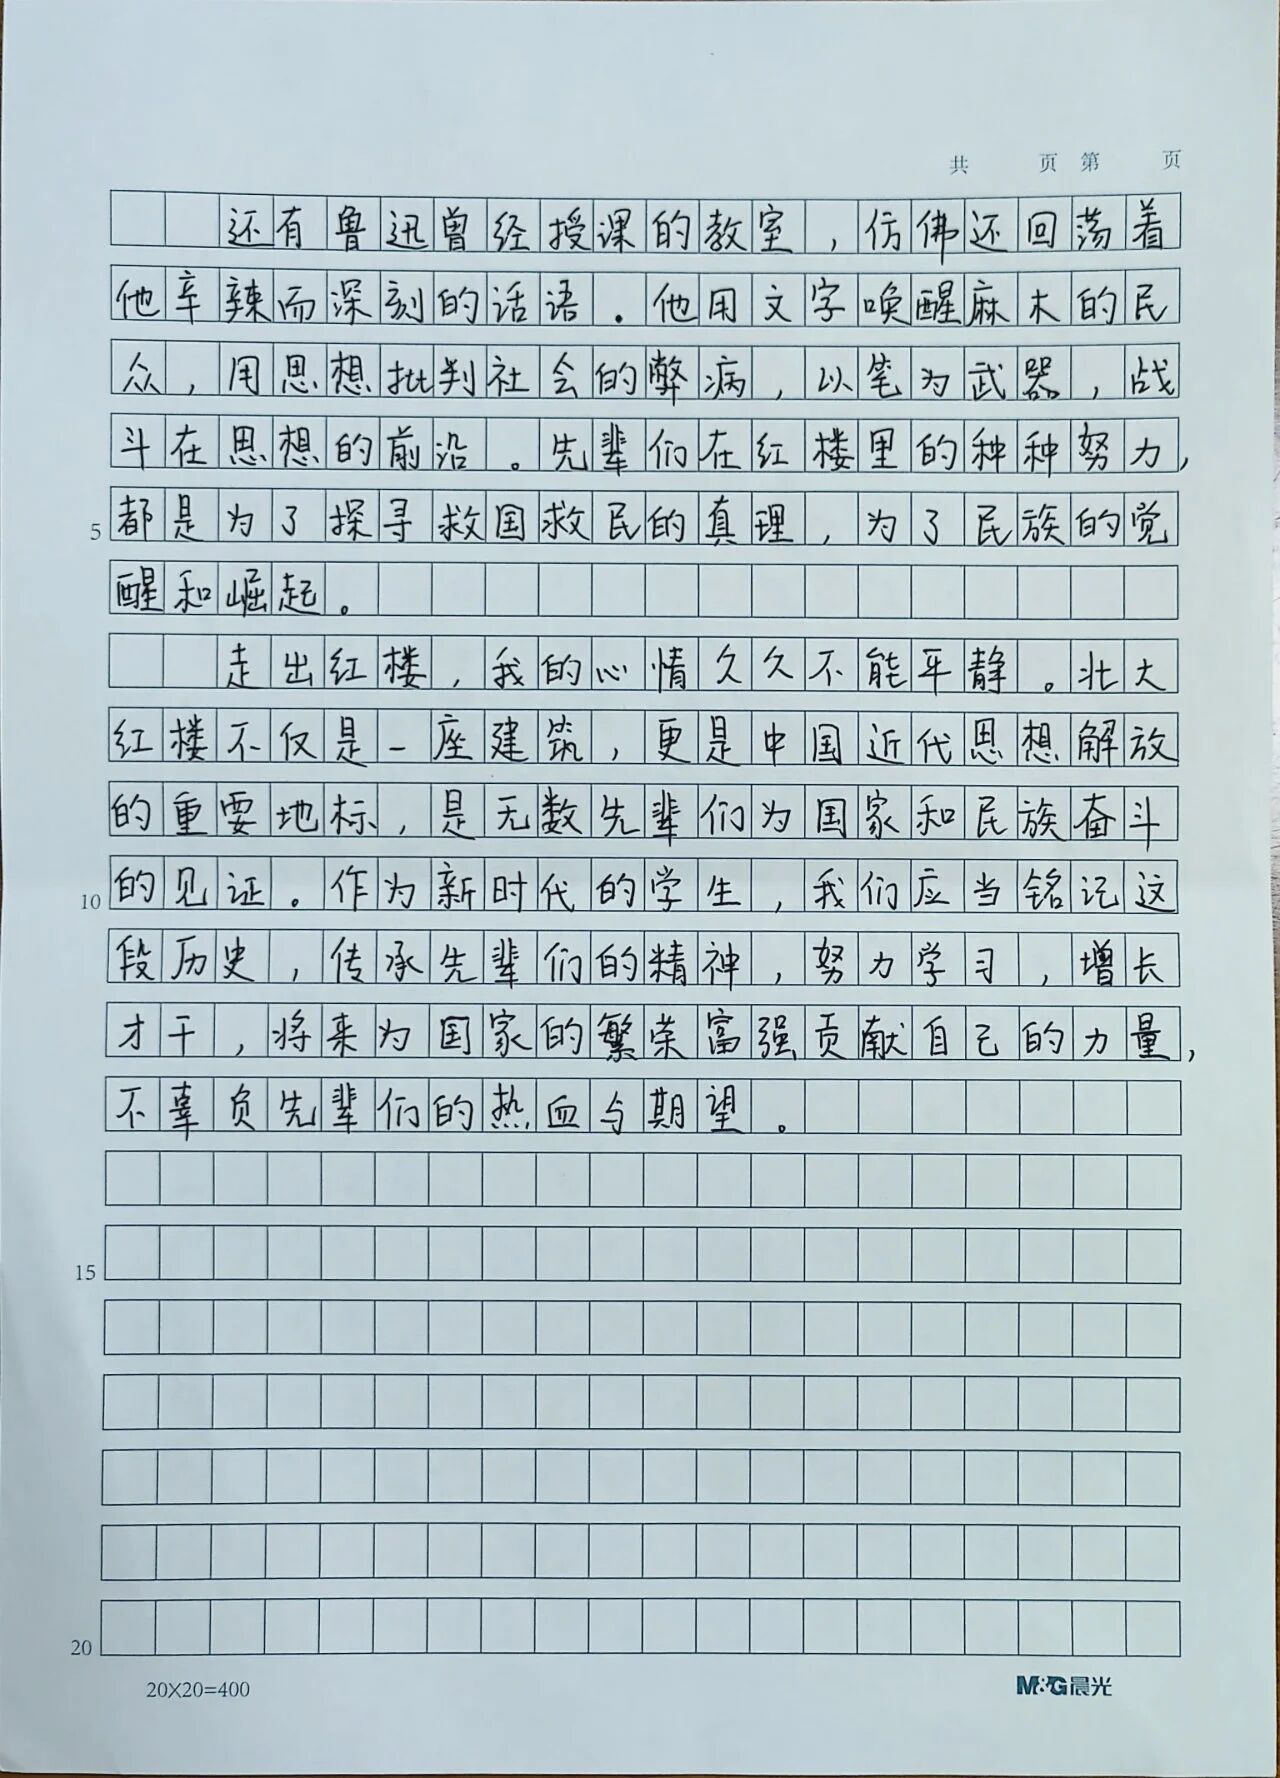 共 页 第 页
还有鲁迅曾经授课的教室，仿佛还回荡着
他辛辣而深刻的话语．他用文字唤醒麻木的民
众，用思想批判社会的弊病，以笔为武器，战
斗在思想的前沿。先辈们在红楼里的种种努力，
5 都是为了探寻救国救民的真理，为了民族的觉
醒和崛起。
走出红楼，我的心情久久不能平静。北大
红楼不仅是一座建筑，更是中国近代思想解放
的重要地标，是无数先辈们为国家和民族奋斗
10 的见证。作为新时代的学生，我们应当铭记这
段历史，传承先辈们的精神，努力学习，增长
才干，将来为国家的繁荣富强贡献自己的力量，
不辜负先辈们的热血与期望。
15
20
20×20=400 M&G晨光